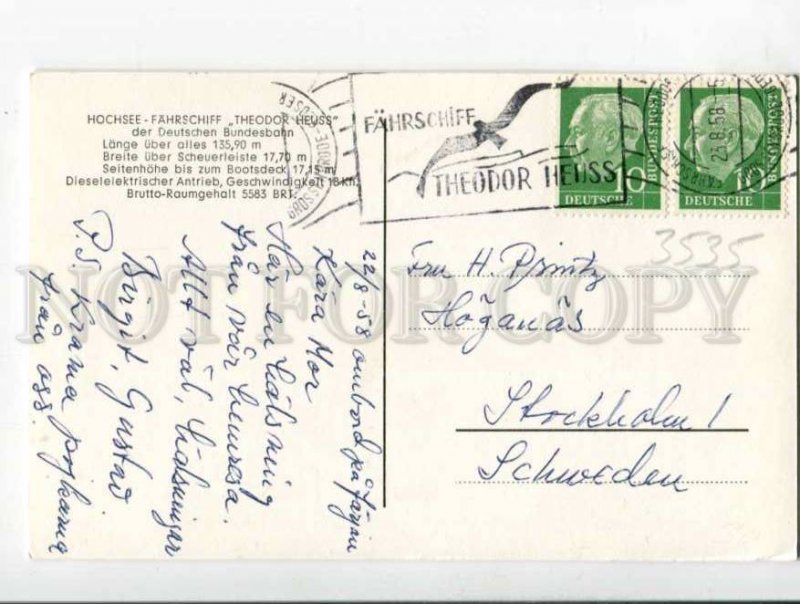 HOCHSEE-FÄHRSCHIFF „THEODOR HEUSS"
der Deutschen Bundesbahn
Länge über alles 135,90 m
Breite über Scheuerleiste 17,70 m
Seitenhöhe bis zum Bootsdeck 17,15 m
Dieselelektrischer Antrieb, Geschwindigkeit 18 Kn.
Brutto-Raumgehalt 5583 BRT.
FÄHRSCHIFF
THEODOR HEUSS
10
DEUTSCHE
BUNDESPOST
10
DEUTSCHE
BUNDESPOST
23.8.58
3535
22/8-58 ombord på färjan
Kära Mor
Här en hälsning
från vår hemresa.
Allt väl, hälsningar
Birgit, Gustav
P.S. Krama pojkarna
från oss.
Fru H. Printz
Höganäs
Stockholm 1
Schweden
NOT FOR COPY